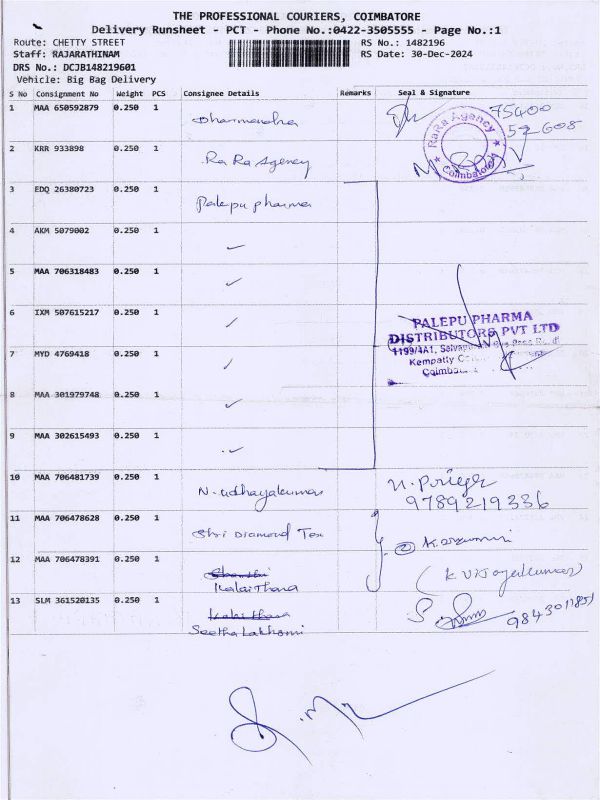 THE PROFESSIONAL COURIERS, COIMBATORE
Delivery Runsheet - PCT - Phone No.:0422-3505555 - Page No.:1
Route: CHETTY STREET RS No.: 1482196
Staff: RAJARATHINAM RS Date: 30-Dec-2024
DRS No.: DCJB148219601
Vehicle: Big Bag Delivery
S No Consignment No Weight PCS Consignee Details Remarks Seal & Signature
1 MAA 650592879 0.250 1 Dharmendra 75400
52608
RaRa Agency
Coimbatore
2 KRR 933898 0.250 1 Ra Ra Agency
3 EDQ 26380723 0.250 1 Palepu pharma
4 AKM 5079002 0.250 1 ✓
5 MAA 706318483 0.250 1 ✓
6 IXM 507615217 0.250 1 ✓
PALEPU PHARMA
DISTRIBUTORS PVT LTD
7 MYD 4769418 0.250 1 ✓
1199/4A1,
Kempatty
8 MAA 301979748 0.250 1 ✓
9 MAA 302615493 0.250 1 ✓
10 MAA 706481739 0.250 1 N. udhayakumar
9789219336
11 MAA 706478628 0.250 1 Shri Diamond Tex
12 MAA 706478391 0.250 1
Kalai Thana (K Vijayakumar)
13 SLM 361520135 0.250 1 Kalai Thana
Seetha Lakshmi 9843011851